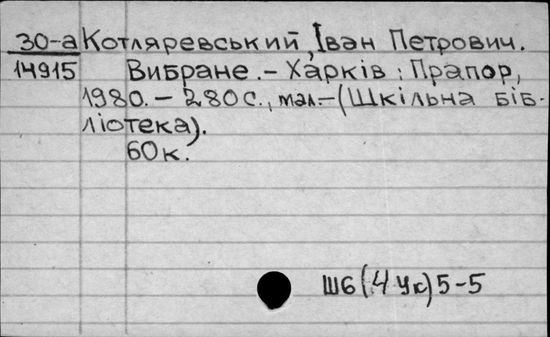 30-а Котляревський, Іван Петрович.
14915 Вибране.- Харків : Прапор,
1980.- 280с., мал.-(Шкільна біб-
ліотека).
60к.
Ш6(4Ук)5-5